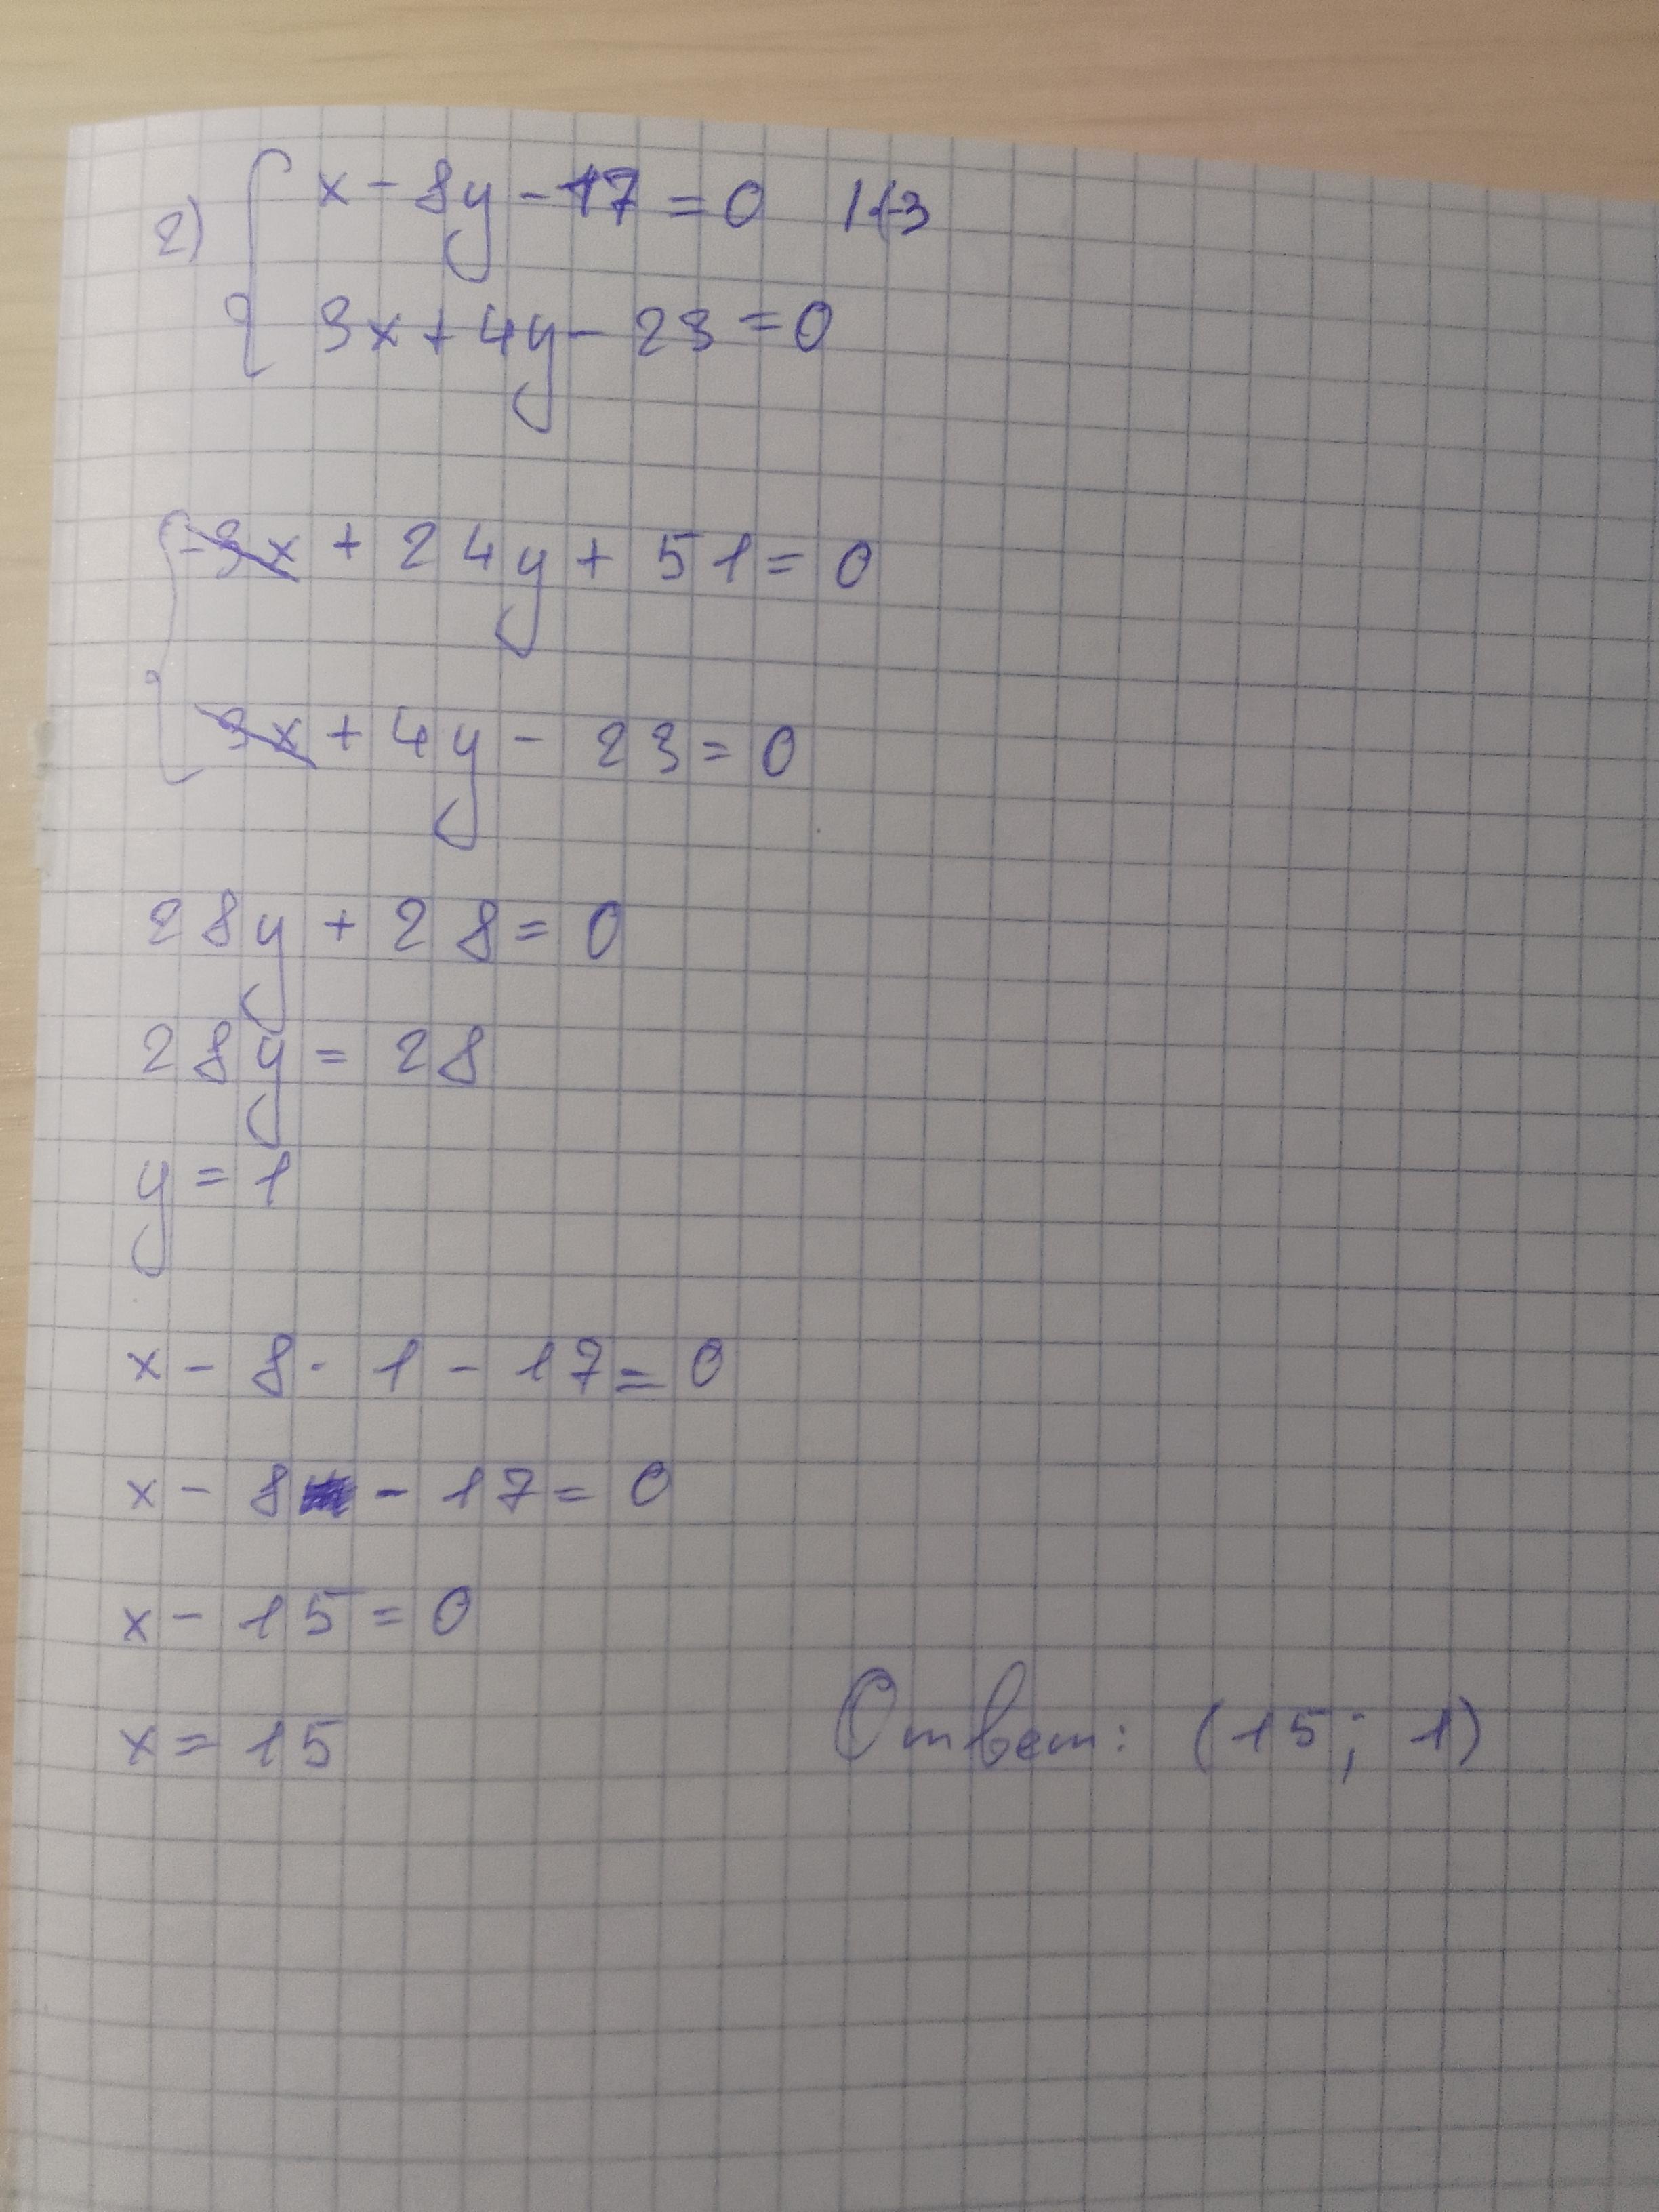 2) { x - 8y - 17 = 0 |·(-3
3x + 4y - 23 = 0
{ -3x + 24y + 51 = 0
3x + 4y - 23 = 0
28y + 28 = 0
28y = 28
y = 1
x - 8 · 1 - 17 = 0
x - 8 - 17 = 0
x - 15 = 0
x = 15
Ответ: (15; 1)